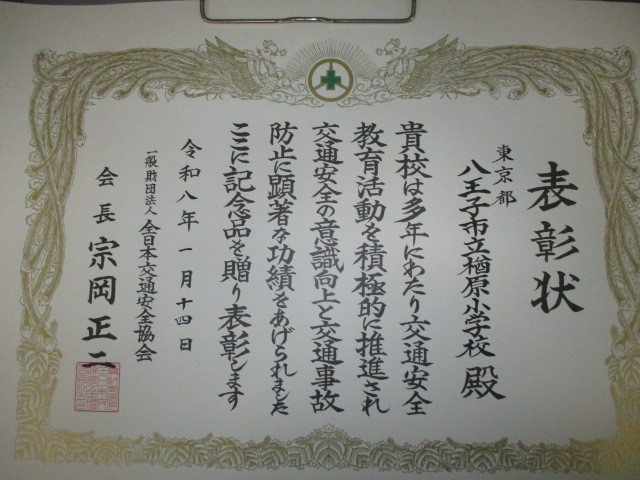 表彰状
東京都
八王子市立楢原小学校 殿
貴校は多年にわたり交通安全
教育活動を積極的に推進され
交通安全の意識向上と交通事故
防止に顕著な功績をあげられました
ここに記念品を贈り表彰します
令和八年一月十四日
一般財団法人 全日本交通安全協会
会長 宗岡正二